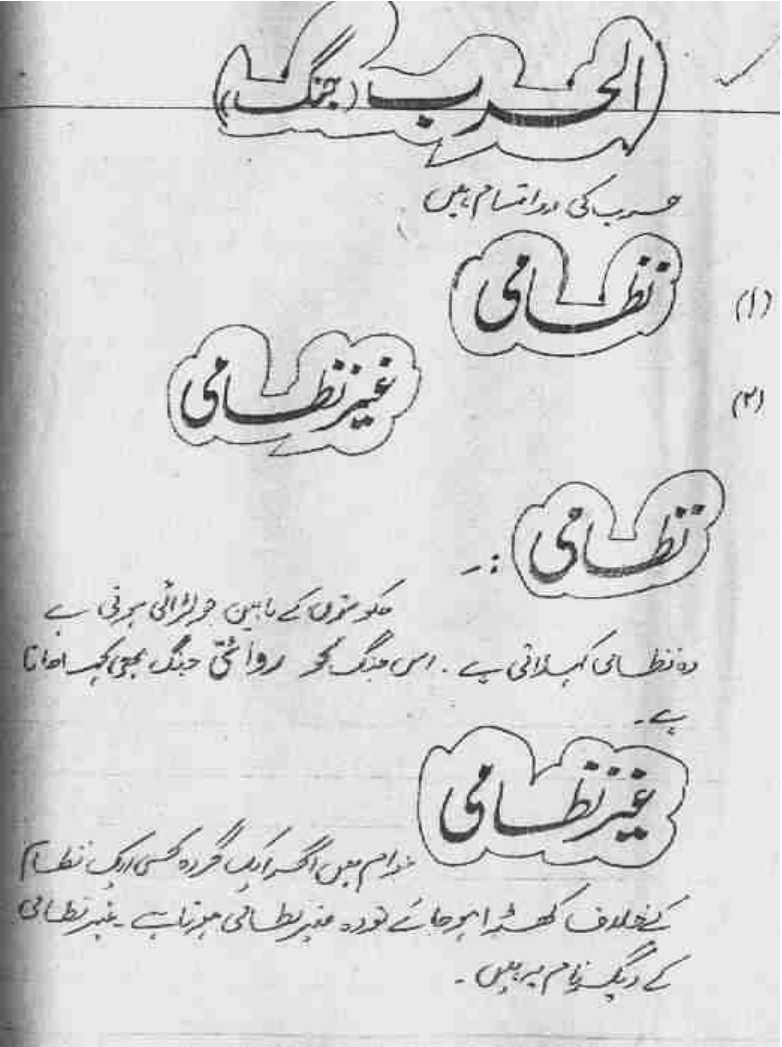 الحرب (جنگ)
حرب کی دو اقسام ہیں
(۱) نظامی
(۲) غیر نظامی
نظامی :-
حکومتوں کے مابین جو لڑائی ہوتی ہے
وہ نظامی کہلاتی ہے ۔ اس جنگ کو روائتی جنگ بھی کہا جاتا
ہے ۔
غیر نظامی
عوام میں اگر ایک گروہ کسی ایک نظام
کے خلاف کھڑا ہو جائے تو وہ غیر نظامی ہوتا ہے ۔ غیر نظامی
کے دیگر نام یہ ہیں ۔